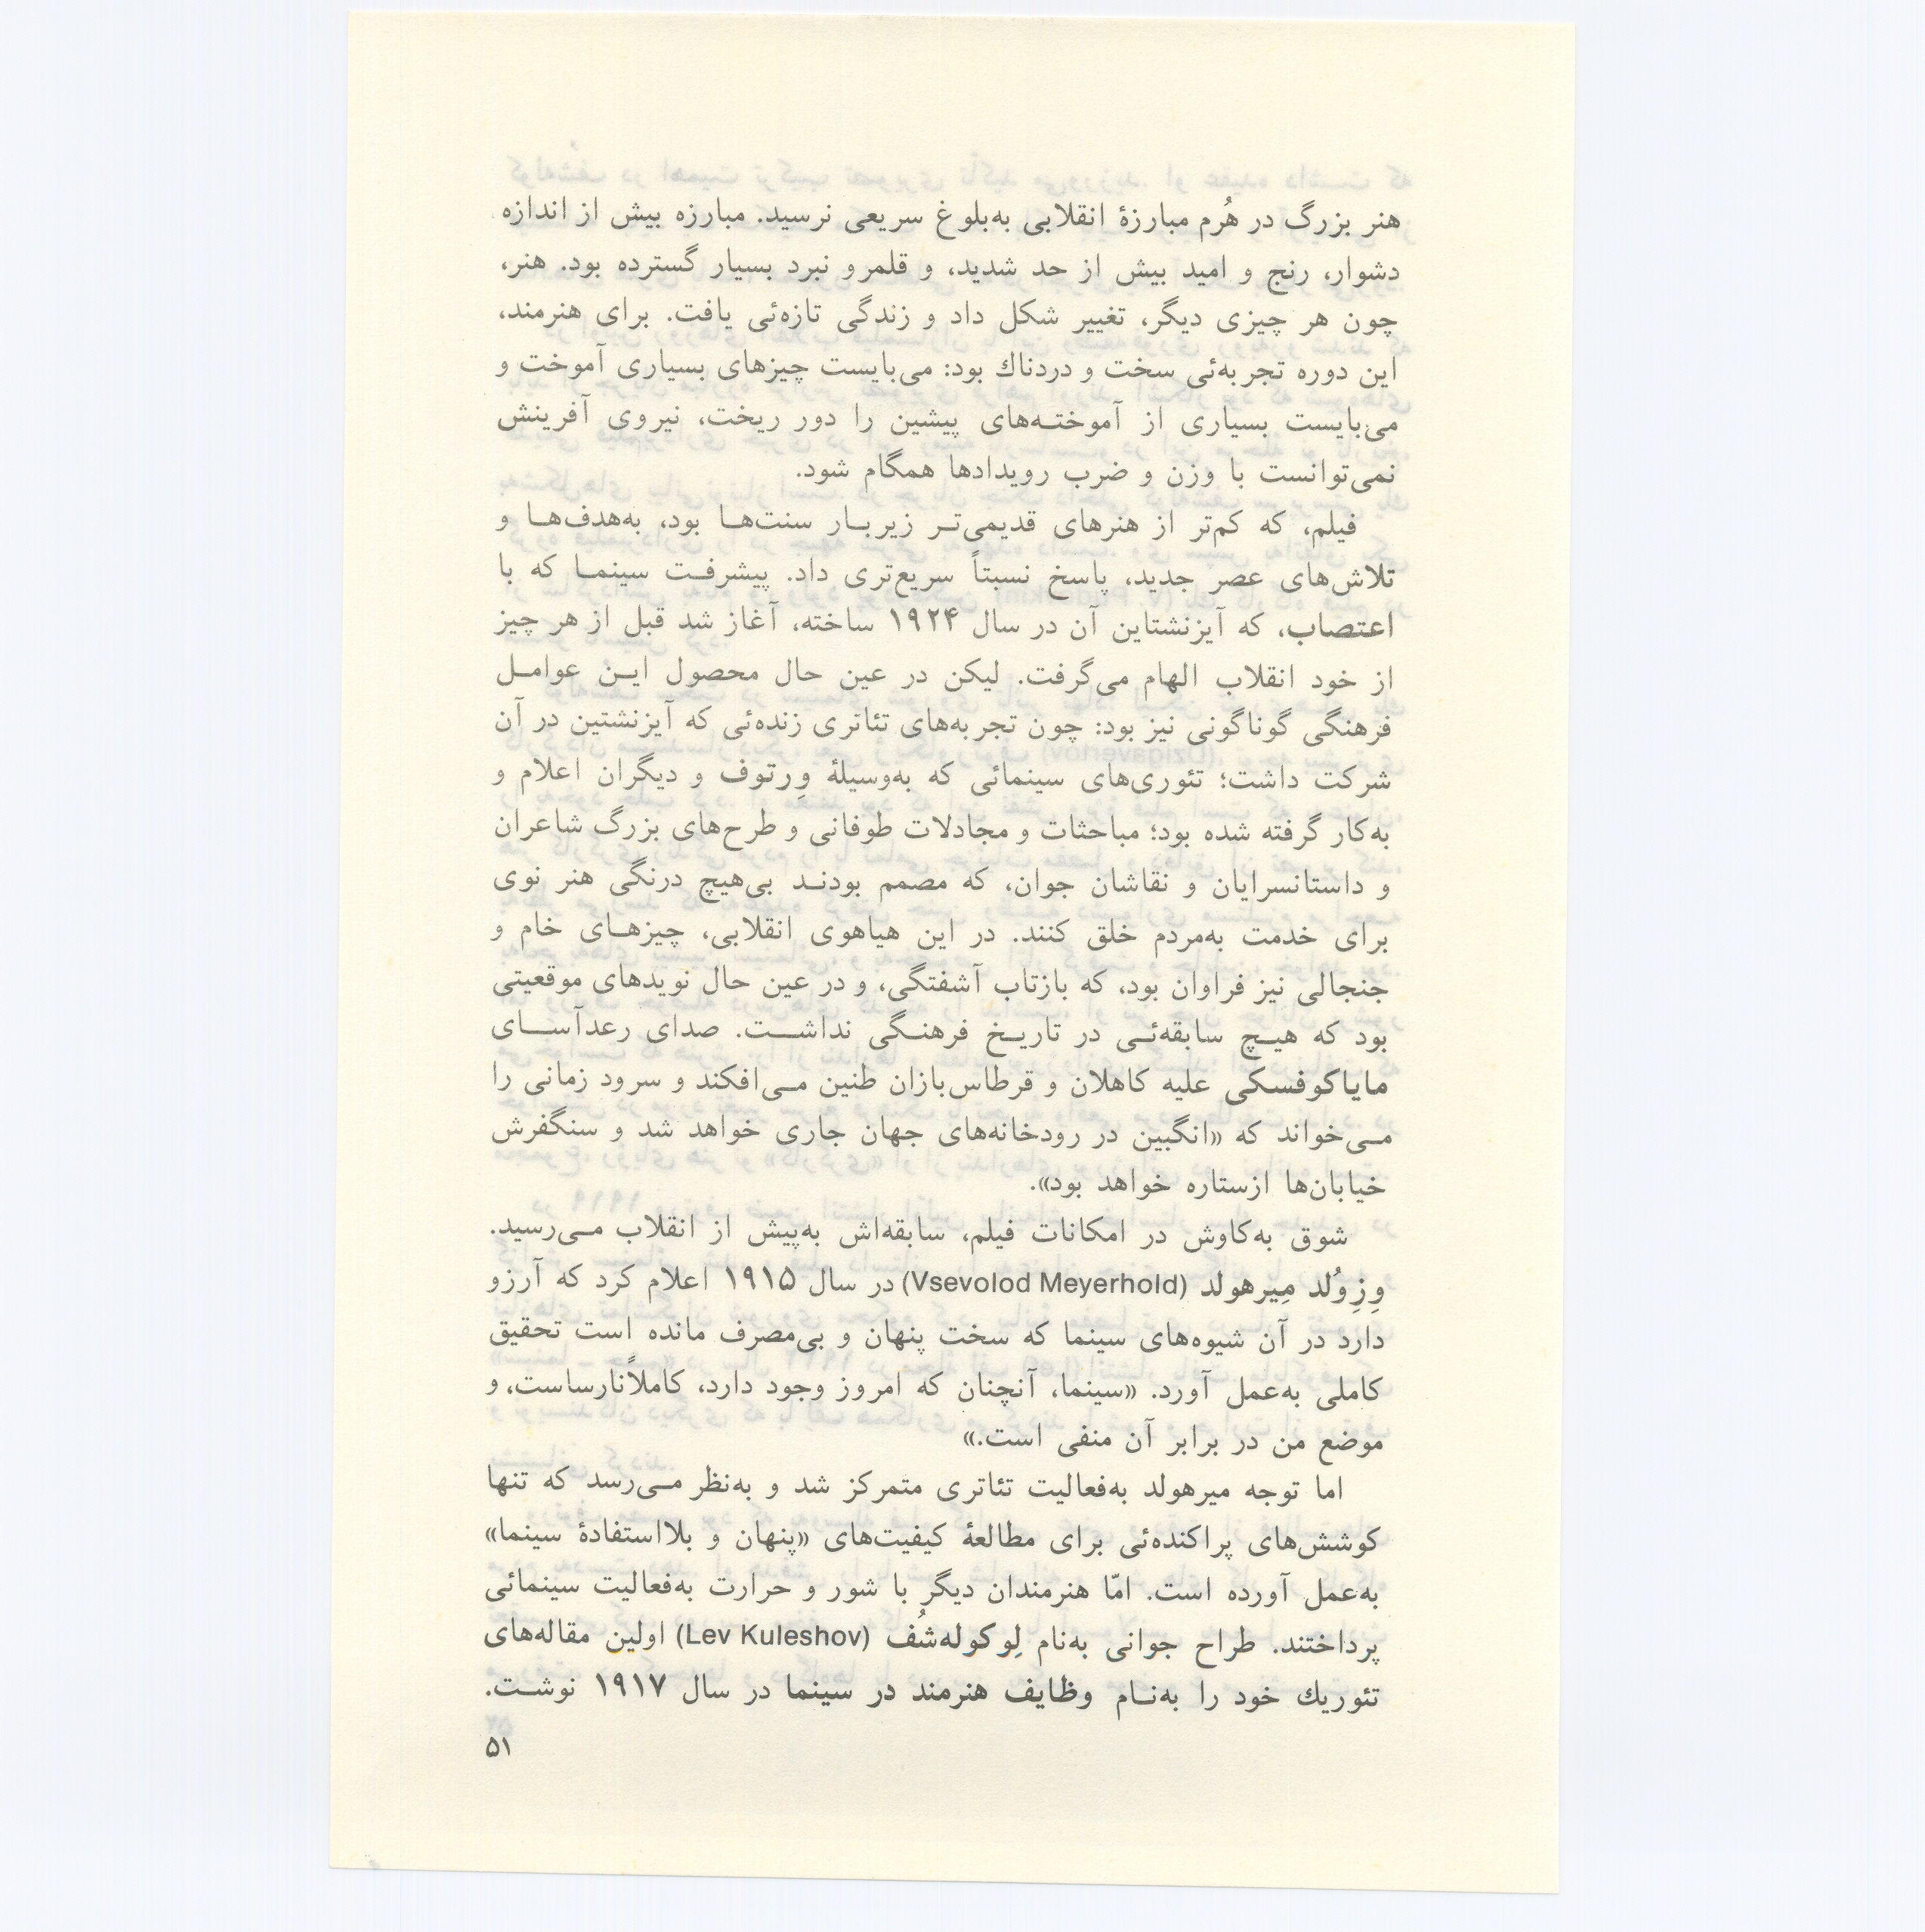 هنر بزرگ در هُرم مبارزهٔ انقلابی به‌بلوغ سریعی نرسید. مبارزه بیش از اندازه
دشوار، رنج و امید بیش از حد شدید، و قلمرو نبرد بسیار گسترده بود. هنر،
چون هر چیزی دیگر، تغییر شکل داد و زندگی تازه‌ئی یافت. برای هنرمند،
این دوره تجربه‌ئی سخت و دردناك بود: می‌بایست چیزهای بسیاری آموخت و
می‌بایست بسیاری از آموخته‌های پیشین را دور ریخت، نیروی آفرینش
نمی‌توانست با وزن و ضرب رویدادها همگام شود.
فیلم، که کم‌تر از هنرهای قدیمی‌تر زیربار سنت‌ها بود، به‌هدف‌ها و
تلاش‌های عصر جدید، پاسخ نسبتاً سریع‌تری داد. پیشرفت سینما که با
اعتصاب، که آیزنشتاین آن در سال ۱۹۲۴ ساخته، آغاز شد قبل از هر چیز
از خود انقلاب الهام می‌گرفت. لیکن در عین حال محصول این عوامل
فرهنگی گوناگونی نیز بود: چون تجربه‌های تئاتری زنده‌ئی که آیزنشتین در آن
شرکت داشت؛ تئوری‌های سینمائی که به‌وسیلهٔ وِرتوف و دیگران اعلام و
به‌کار گرفته شده بود؛ مباحثات و مجادلات طوفانی و طرح‌های بزرگ شاعران
و داستانسرایان و نقاشان جوان، که مصمم بودند بی‌هیچ درنگی هنر نوی
برای خدمت به‌مردم خلق کنند. در این هیاهوی انقلابی، چیزهای خام و
جنجالی نیز فراوان بود، که بازتاب آشفتگی، و در عین حال نویدهای موقعیتی
بود که هیچ سابقه‌ئی در تاریخ فرهنگی نداشت. صدای رعدآسای
مایاکوفسکی علیه کاهلان و قرطاس‌بازان طنین می‌افکند و سرود زمانی را
می‌خواند که «انگبین در رودخانه‌های جهان جاری خواهد شد و سنگفرش
خیابان‌ها ازستاره خواهد بود».
شوق به‌کاوش در امکانات فیلم، سابقه‌اش به‌پیش از انقلاب می‌رسید.
وِزِوُلد مِیرهولد (Vsevolod Meyerhold) در سال ۱۹۱۵ اعلام کرد که آرزو
دارد در آن شیوه‌های سینما که سخت پنهان و بی‌مصرف مانده است تحقیق
کاملی به‌عمل آورد. «سینما، آنچنان که امروز وجود دارد، کاملاًنارساست، و
موضع من در برابر آن منفی است.»
اما توجه میرهولد به‌فعالیت تئاتری متمرکز شد و به‌نظر می‌رسد که تنها
کوشش‌های پراکنده‌ئی برای مطالعهٔ کیفیت‌های «پنهان و بلااستفادهٔ سینما»
به‌عمل آورده است. امّا هنرمندان دیگر با شور و حرارت به‌فعالیت سینمائی
پرداختند. طراح جوانی به‌نام لِوکوله‌شُف (Lev Kuleshov) اولین مقاله‌های
تئوریك خود را به‌نام وظایف هنرمند در سینما در سال ۱۹۱۷ نوشت.
۵۱